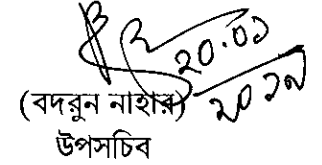 ২০.০১
২০১৭
(বদরুন নাহার)
উপসচিব